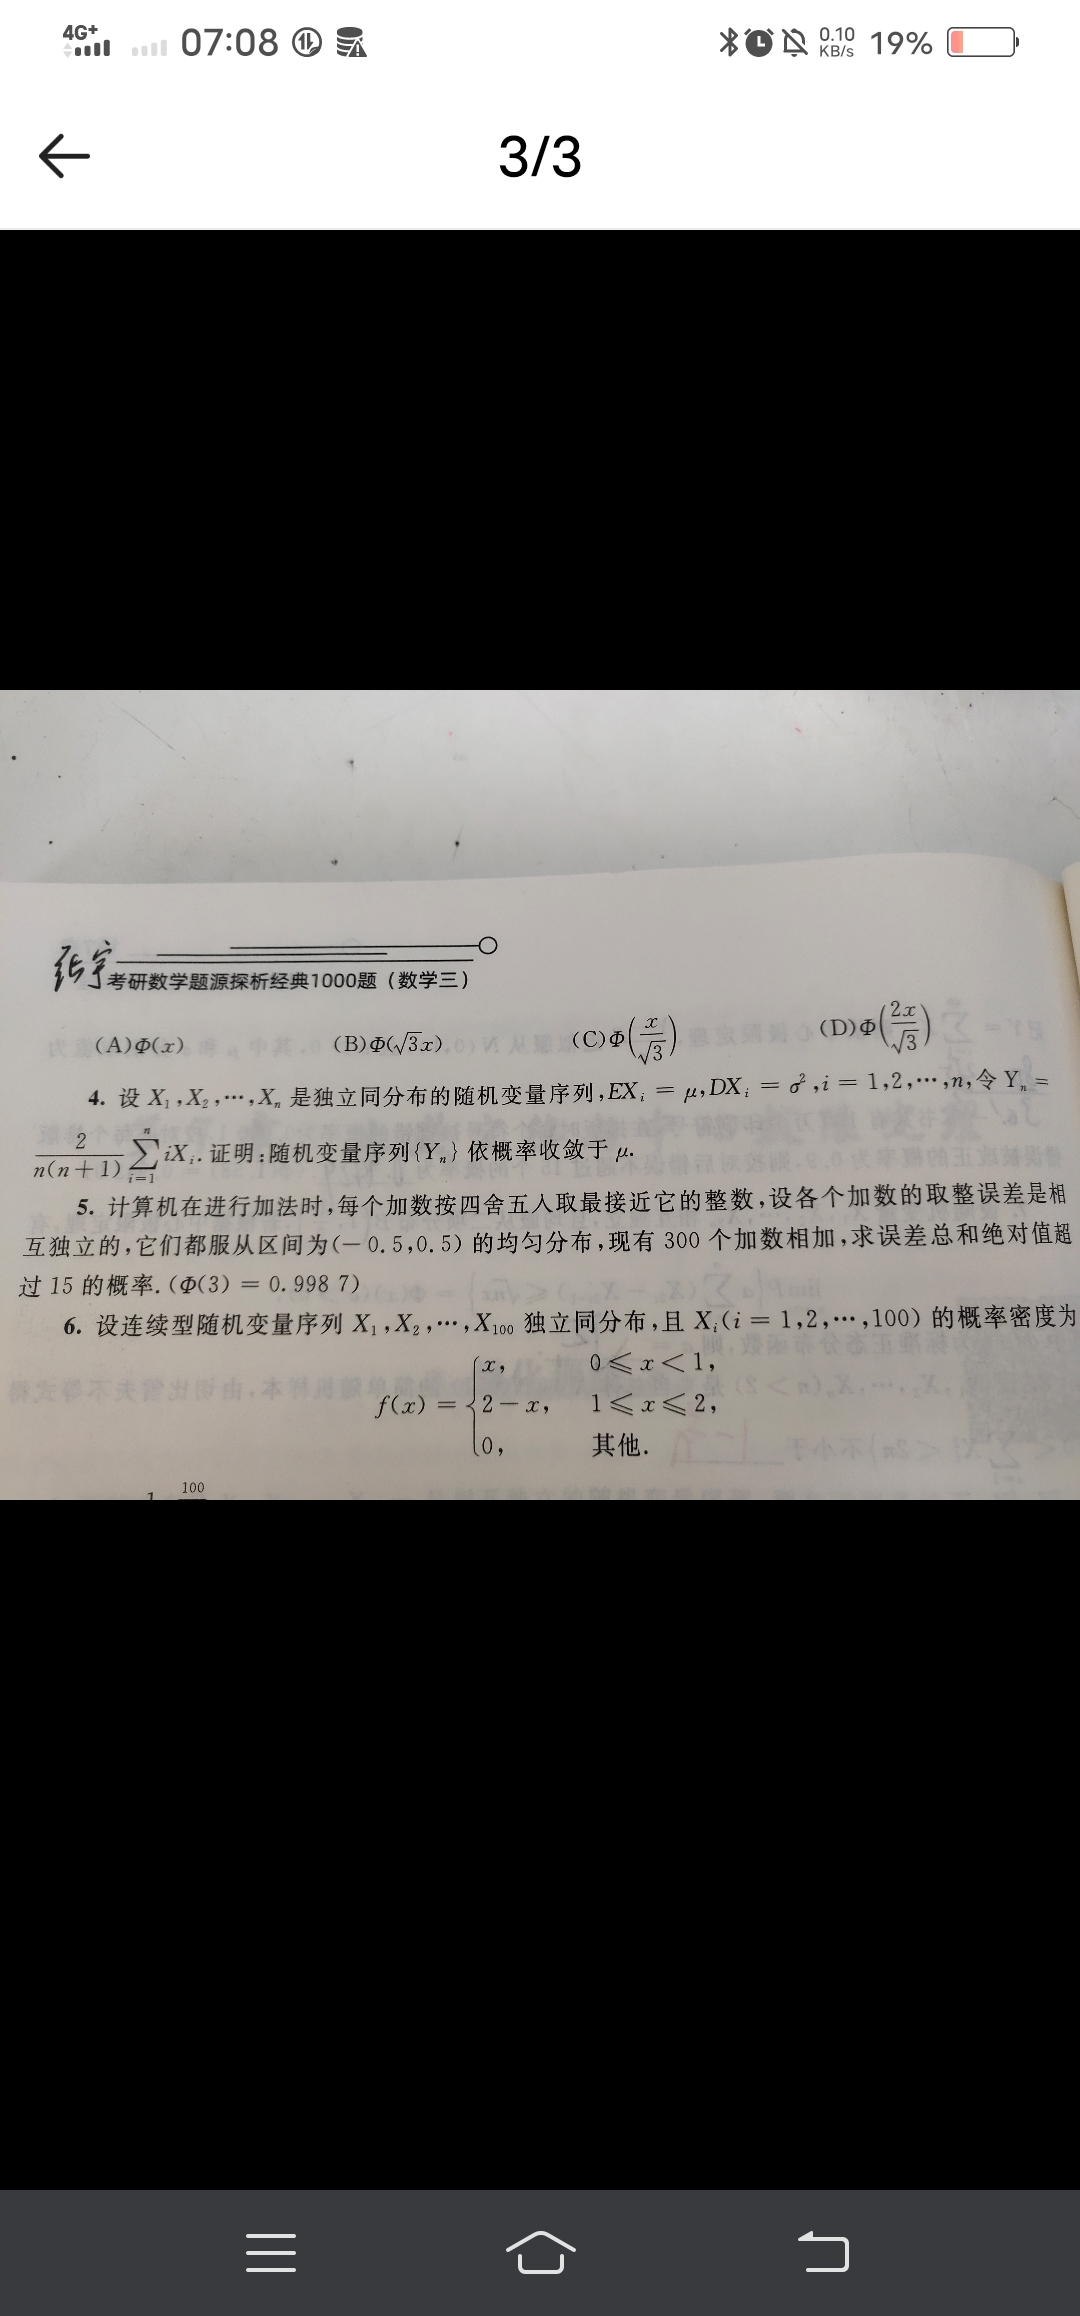 4G+ 07:08 0.10 KB/s 19%
3/3
张宇 考研数学题源探析经典1000题（数学三）
(A)Φ(x) (B)Φ(√3x) (C)Φ(x/√3) (D)Φ(2x/√3)
4. 设 X₁,X₂,⋯,Xₙ 是独立同分布的随机变量序列,EXᵢ = μ,DXᵢ = σ²,i = 1,2,⋯,n,令 Yₙ =
2/(n(n+1)) ∑ᵢ₌₁ⁿ iXᵢ. 证明:随机变量序列{Yₙ} 依概率收敛于 μ.
5. 计算机在进行加法时,每个加数按四舍五入取最接近它的整数,设各个加数的取整误差是相
互独立的,它们都服从区间为(−0.5,0.5) 的均匀分布,现有 300 个加数相加,求误差总和绝对值超
过 15 的概率. (Φ(3) = 0.998 7)
6. 设连续型随机变量序列 X₁,X₂,⋯,X₁₀₀ 独立同分布,且 Xᵢ(i = 1,2,⋯,100) 的概率密度为
f(x) = { x, 0 ⩽ x < 1,
2 − x, 1 ⩽ x ⩽ 2,
0, 其他.
1 100